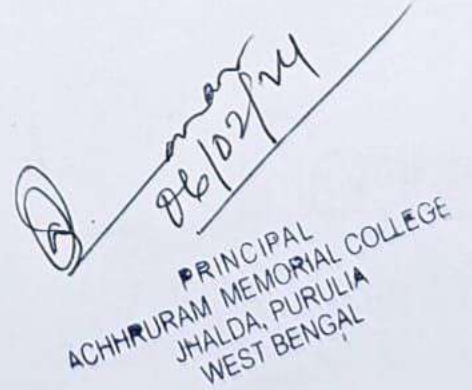 06/02/24
PRINCIPAL
ACHHRURAM MEMORIAL COLLEGE
JHALDA, PURULIA
WEST BENGAL